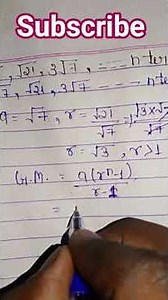 Subscribe
, √21, 3√7, --- n-ter
7, √21, 3√7 ---- n
a = √7, r = √21/√7 = √3×√
r = √3, r>1
G.M. = a(rⁿ-1)/r-1
=